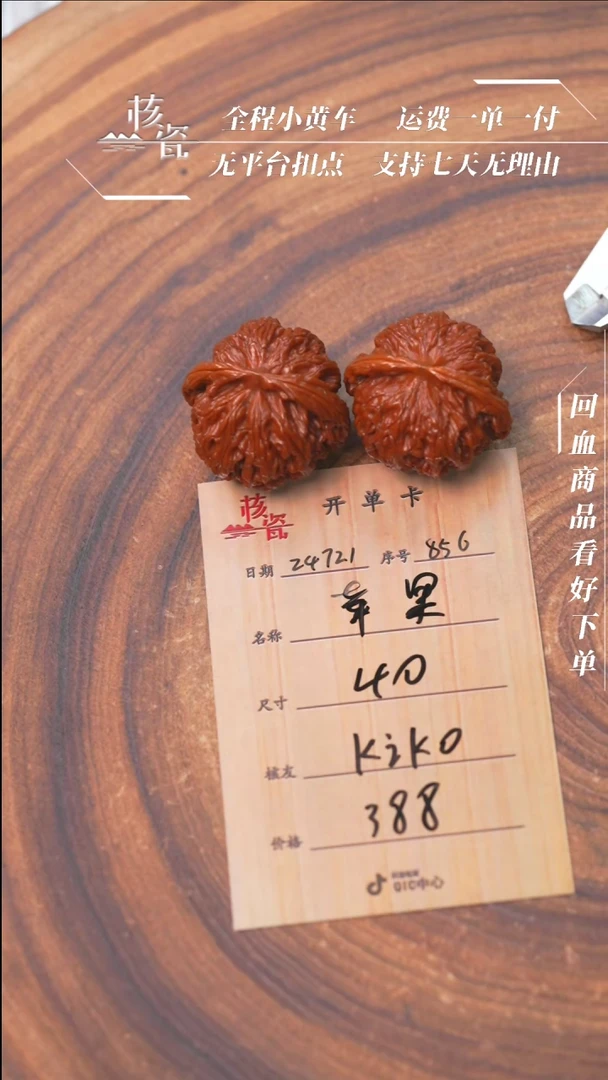 核瓷
全程小黄车 运费一单一付
无平台扣点 支持七天无理由
回血商品看好下单
核瓷 开单卡
日期 24721 序号 856
名称 苹果
尺寸 40
核友 kiko
价格 388
抖音电商
QIC中心